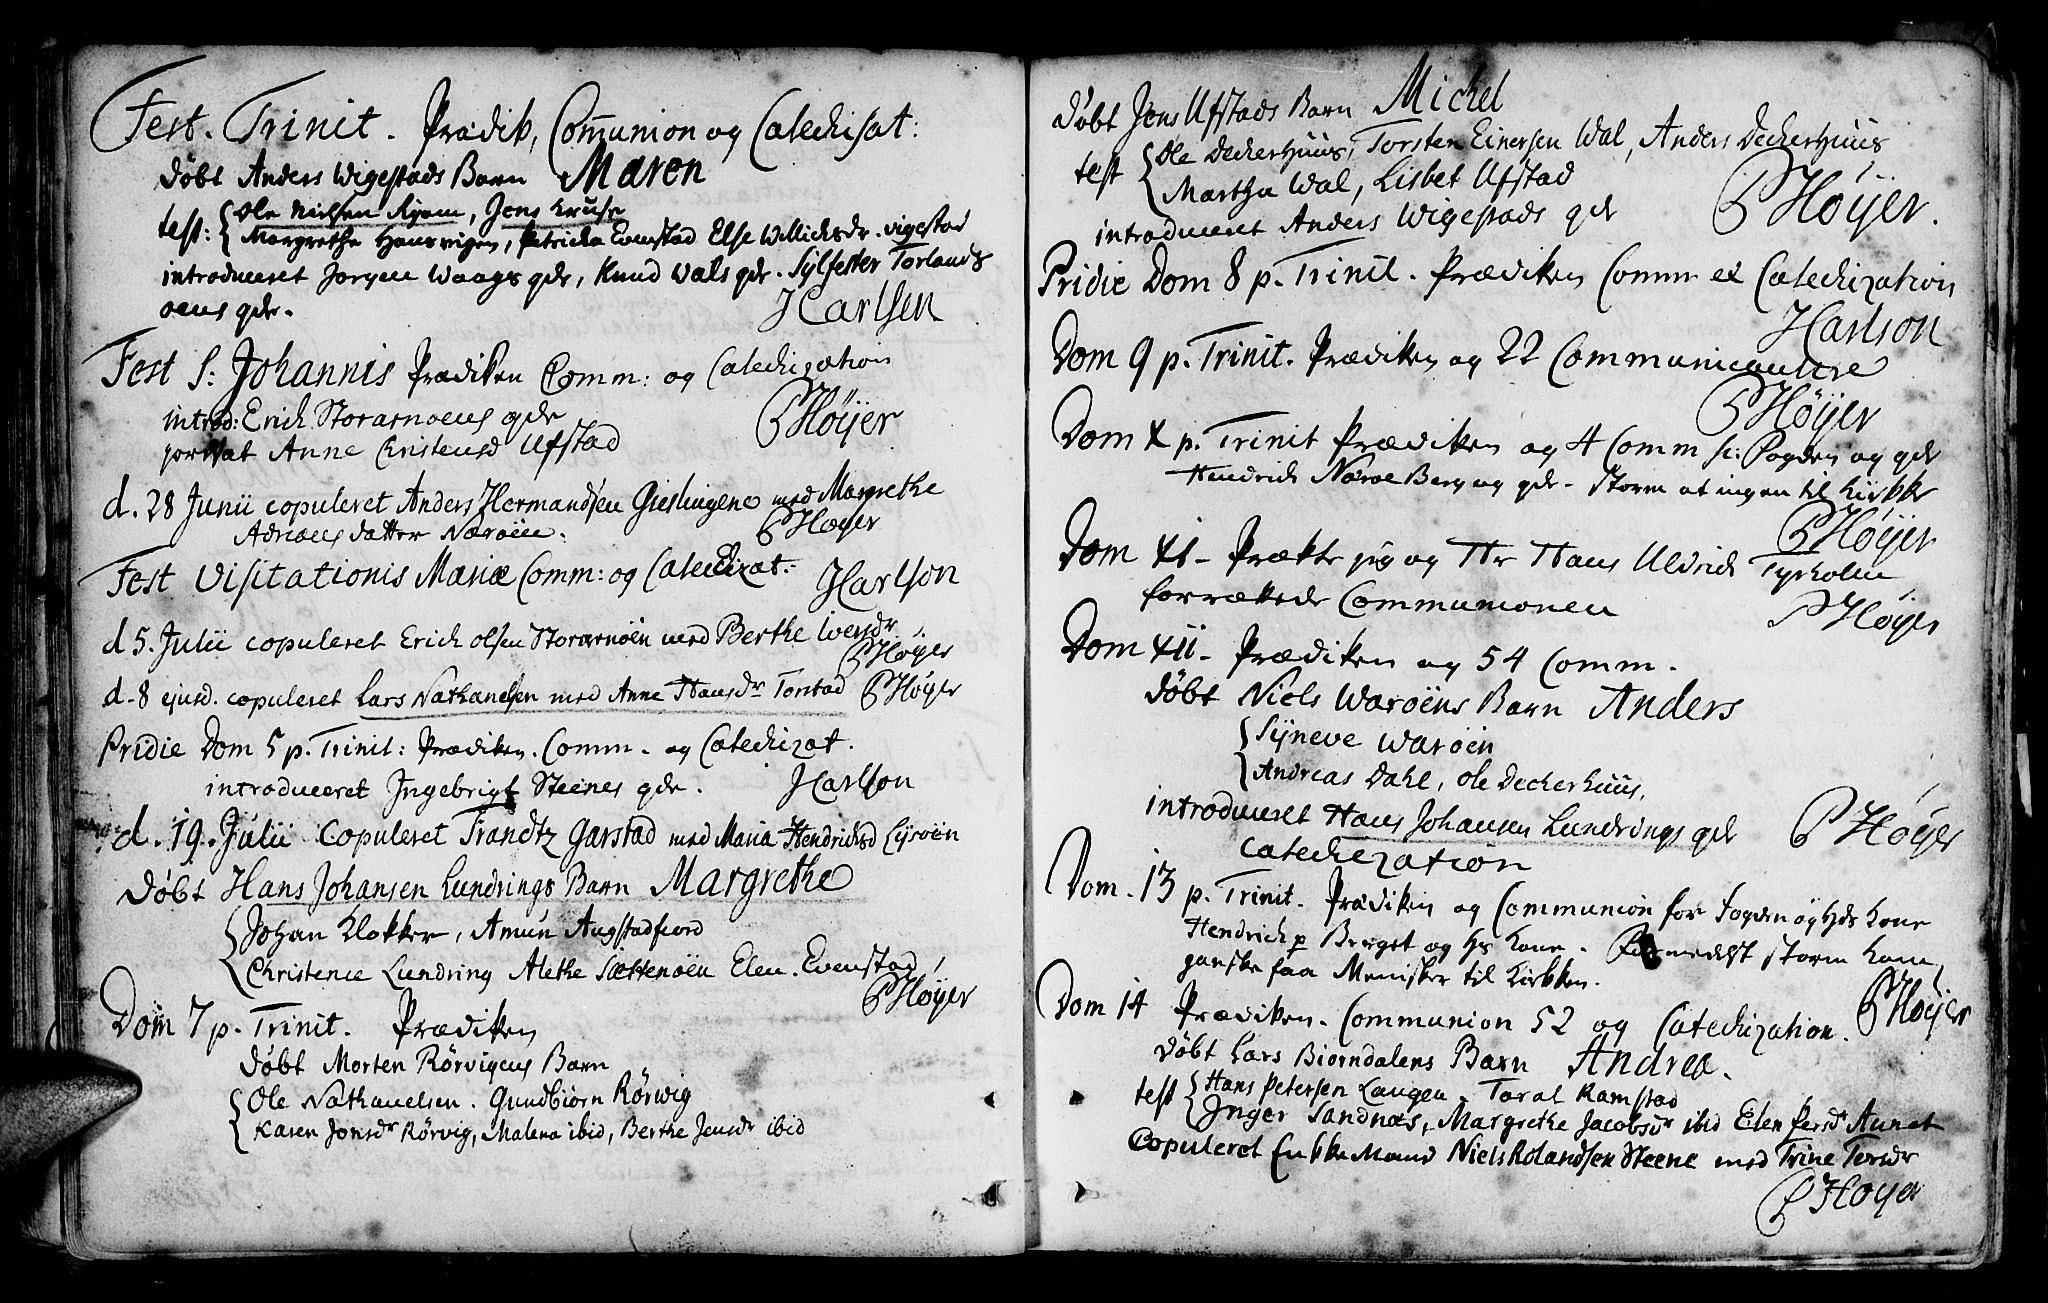 Fest. Trinit. Prædik, Communion og Catechisat:
Døbt Anders Wigestads Barn Maren
test: Ole Nielsen Ryem, Jens Kruse
Margrethe Hansvigen, Petricka Evenstad Else Willichsdr. vigestad
introduceret Jørgen Waags qdr, Knud Wals qdr. Sylfester Torlands
oens qdr.
JCarlsen
Fest S: Johannis Prædiken Comm: og Catechization
introd: Erich Storarnoens qdr
PHøyer
Anne Christensd Ufstad
d. 28 Junii copuleret Anders Hermandsen Gieslingene med Margrethe
Adriansdatter Nærøin.
PHøyer
Fest Visitationis Mariæ Comm: og Catechizat:
JCarlson
d 5. Julii copuleret Erich Olsen Storarnøen med Berthe Iversdr
PHøyer
d. 8 ejusd. copuleret Lars Nathanelsen med Anne Hansdr Torstad PHøyer
Pridie Dom 5 p. Trinit: Prædiken. Comm. og Catechizat.
introduceret Ingebrigt Steenes qdr.
JCarlson
d. 19. Julii Copuleret Trandtz Garstad med Maria Hendrichsd Lyrøen
Døbt Hans Johansen Lundrings Barn Margrethe
Johan Klokker, Amun Augstadfiord
Christence Lundring Alethe Sættenøen Elen Evenstad
PHøyer
Dom 7 p. Trinit. Prædiken
Døbt Morten Rörvigens Barn
Ole Nathanelsen. Gundbiørn Rörvig
Karen Jonsdr Rörvig, Malena ibid, Berthe Jensdr ibid
Døbt Jens Ufstads Barn Michel
test Ole Deckerhuus, Torsten Einersen Wal, Anders Deckerhuus
Martha Wal, Lisbet Ufstad
introduceret Anders Wigestads qdr
PHøyer.
Pridie Dom 8 p. Trinit. Prædiken Comm et Catechization
JCarlson
Dom 9 p. Trinit. Prædiken og 22 Communicantere
PHøyer
Dom X p. Trinit Prædiken og 4 Comm sc: Fogden og qdr
Hendrich Næroe Berg og qdr. Storm at ingen til Kirkke
PHøyer
Dom XI. Prækte jeg og Hr Hans Uldrich Tyrholm
forrættede Communionen
PHøyer
Dom XII. Prædiken og 54 Comm.
Døbt Niels Warøens Barn Anders
Syneve Warøen
Andreas Dahl, Ole Deckerhuus,
introduceret Hans Johansen Lundrings qdr
PHøyer
Catechization
Dom. 13 p. Trinit. Prædiken og Communion for Fogden og Hds Kone
Hendrich p Berget og Hs Kone. Formedelst storm kom
ganske faa Menisker til Kirkken.
PHøyer
Dom 14 Prædiken. Communion 52 og Catechization.
Døbt Lars Biorndalens Barn Andrea.
test Hans Petersen Laugen Toral Ramstad
Inger Sandnæs, Margrethe Jacobsdr ibid Elen Persdr Aunet
Copuleret EnkkeMand Niels Rolandsen Steene med Trine Torsdr
PHøyer